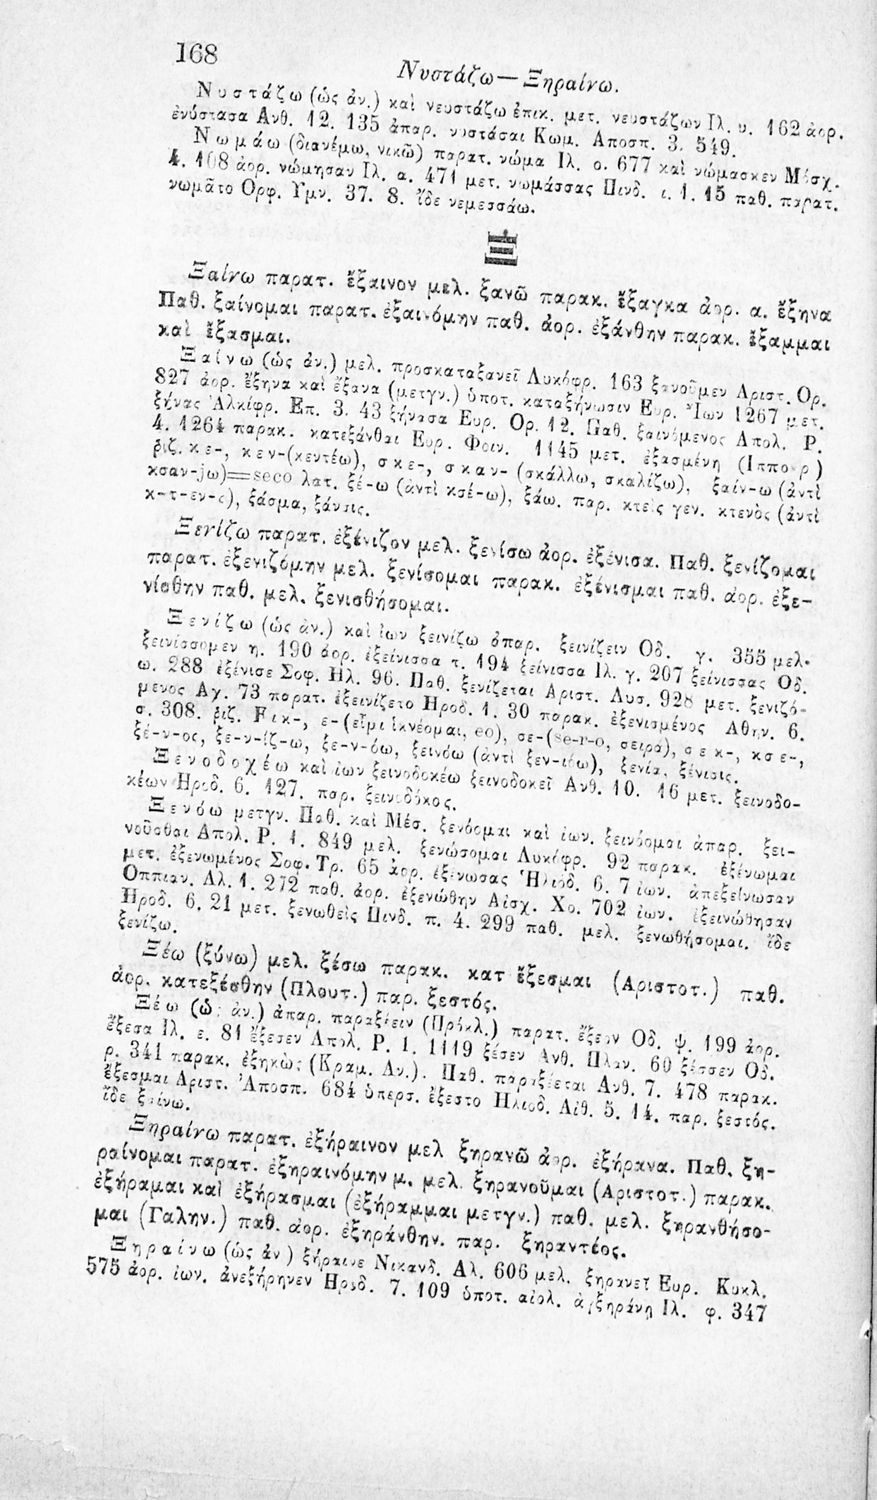 168
Νυστάζω—Ξηραίνω.
Νυστάζω (ὡς ἀν.) καὶ νευστάζω ἐπικ. μετ. νευστάζων Ἰλ. υ. 162 ἀορ.
ἐνύστασα Ανθ. 12. 135 ἀπαρ. νυστάσαι Κωμ. Αποσπ. 3. 549.
Νωμάω (διανέμω, νικῶ) παρατ. νώμα Ἰλ. ο. 677 καὶ νώμασκεν Μόσχ.
4. 108 ἀορ. νώμησαν Ἰλ. α. 471 μετ. νωμάσσας Πινδ. ι. 1. 15 παθ. παρατ.
νωμᾶτο Ορφ. Υμν. 37. 8. ἴδε νεμεσσάω.
Ξ
Ξαίνω παρατ. ἔξαινον μελ. ξανῶ παρακ. ἔξαγκα ἀορ. α. ἔξηνα
Παθ. ξαίνομαι παρατ. ἐξαινόμην παθ. ἀορ. ἐξάνθην παρακ. ἔξαμμαι
καὶ ἔξασμαι.
Ξαίνω (ὡς ἀν.) μελ. προσκαταξανεῖ Λυκόφρ. 163 ξανοῦμεν Αριστ. Ορ.
827 ἀορ. ἔξηνα καὶ ἔξανα (μετγν.) ὑποτ. καταξήνωσιν Ευρ. Ἴων 1267 μετ.
ξήνας Ἀλκίφρ. Επ. 3. 43 ξήνασα Ευρ. Ορ. 12. Παθ. ξαινόμενος Απολ. Ρ.
4. 1264 παρακ. κατεξάνθαι Ευρ. Φοιν. 1145 μετ. ἐξασμένη (Ιπποκρ)
ῥιζ. κε-, κεν-(κεντέω), σκε-, σκαν- (σκάλλω, σκαλίζω), ξαίν-ω (ἀντὶ
κσαν-jω)=seco λατ. ξέ-ω (ἀντὶ κσέ-ω), ξάω. παρ. κτεὶς γεν. κτενὸς (ἀντὶ
κ-τ-εν-ς), ξάσμα, ξάνσις.
Ξενίζω παρατ. ἐξένιζον μελ. ξενίσω ἀορ. ἐξένισα. Παθ. ξενίζομαι
παρατ. ἐξενιζόμην μελ. ξενίσομαι παρακ. ἐξένισμαι παθ. ἀορ. ἐξε-
νίσθην παθ. μελ. ξενισθήσομαι.
Ξενίζω (ὡς ἀν.) καὶ ἰων ξεινίζω ἀπαρ. ξεινίζειν Οδ. γ. 355 μελ.
ξεινίσσομεν η. 190 ἀορ. ἐξείνισσα τ. 194 ξείνισσα Ιλ. γ. 207 ξείνισσας Οδ.
ω. 288 ἐξένισε Σοφ. Ηλ. 96. Παθ. ξενίζεται Αριστ. Λυσ. 928 μετ. ξενιζό-
μενος Αχ. 73 παρατ. ἐξεινίζετο Ηροδ. 1. 30 παρακ. ἐξενισμένος Αθην. 6.
σ. 308. ῥιζ. Fικ-, ε-(εἶμι ἱκνέομαι, eo), σε-(se-r-o, σειρά), σεκ-, κσε-,
ξέ-ν-ος, ξε-ν-ίζ-ω, ξε-ν-όω, ξεινόω (ἀντὶ ξεν-ιόω), ξενία, ξένισις.
Ξενοδοχέω καὶ ἰων ξεινοδοκέω ξεινοδοκεῖ Ανθ. 10. 16 μετ. ξεινοδο-
κέων Ηροδ. 6. 127. παρ. ξεινοδόκος.
Ξενόω μετγν. Παθ. καὶ Μέσ. ξενόομαι καὶ ἰων. ξεινόομαι ἀπαρ. ξει-
νοῦσθαι Απολ. Ρ. 1. 849 μελ. ξενώσομαι Λυκόφρ. 92 παρακ. ἐξένωμαι
μετ. ἐξενωμένος Σοφ. Τρ. 65 ἀορ. ἐξένωσας Ἡλιόδ. 6. 7 ἰων. ἀπεξείνωσαν
Οππιαν. Αλ. 1. 272 παθ. ἀορ. ἐξενώθην Αἰσχ. Χο. 702 ἰων. ἐξεινώθησαν
Ηροδ. 6. 21 μετ. ξενωθεὶς Πινδ. π. 4. 299 παθ. μελ. ξενωθήσομαι. ἴδε
ξενίζω.
Ξέω (ξύνω) μελ. ξέσω παρακ. κατ ἔξεσμαι (Αριστοτ.) παθ.
ἀορ. κατεξέσθην (Πλουτ.) παρ. ξεστός.
Ξέω (ὡς ἀν.) ἀπαρ. παραξέειν (Πρόκλ.) παρατ. ἔξεον Οδ. ψ. 199 ἀορ.
ἔξεσα Ιλ. ε. 81 ἔξεσεν Απολ. Ρ. 1. 1119 ξέσεν Ανθ. Πλαν. 60 ξέσσεν Οδ.
ρ. 341 παρακ. ἐξηκὼς (Κραμ. Αν.). Παθ. παραξέεται Ανθ. 7. 478 παρακ.
ἔξεσμαι Αριστ. Ἀποσπ. 684 ὑπερσ. ἔξεστο Ηλιοδ. Αἰθ. 5. 14. παρ. ξεστός.
ἴδε ξαίνω.
Ξηραίνω παρατ. ἐξήραινον μελ ξηρανῶ ἀορ. ἐξήρανα. Παθ. ξη-
ραίνομαι παρατ. ἐξηραινόμην μ. μελ. ξηρανοῦμαι (Αριστοτ.) παρακ.
ἐξήραμαι καὶ ἐξήρασμαι (ἐξήραμμαι μετγν.) παθ. μελ. ξηρανθήσο-
μαι (Γαλην.) παθ. ἀορ. ἐξηράνθην. παρ. ξηραντέος.
Ξηραίνω (ὡς ἀν) ξήραινε Νικανδ. Αλ. 606 μελ. ξηρανεῖ Ευρ. Κυκλ.
575 ἀορ. ἰων. ἀνεξήρηνεν Ηροδ. 7. 109 ὑποτ. αἰολ. ἀγξηράνῃ Ιλ. φ. 347